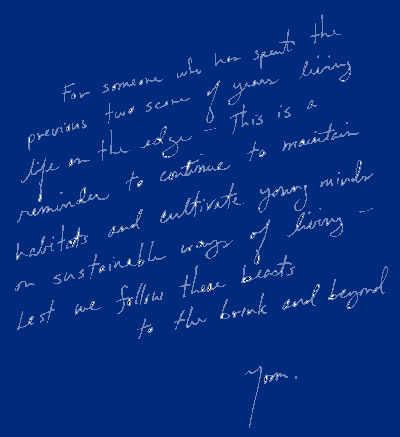 For someone who has spent the
previous two score of years living
life on the edge -- This is a
reminder to continue to maintain
habitats and cultivate young minds
on sustainable ways of living --
Lest we follow these beasts
to the brink and beyond